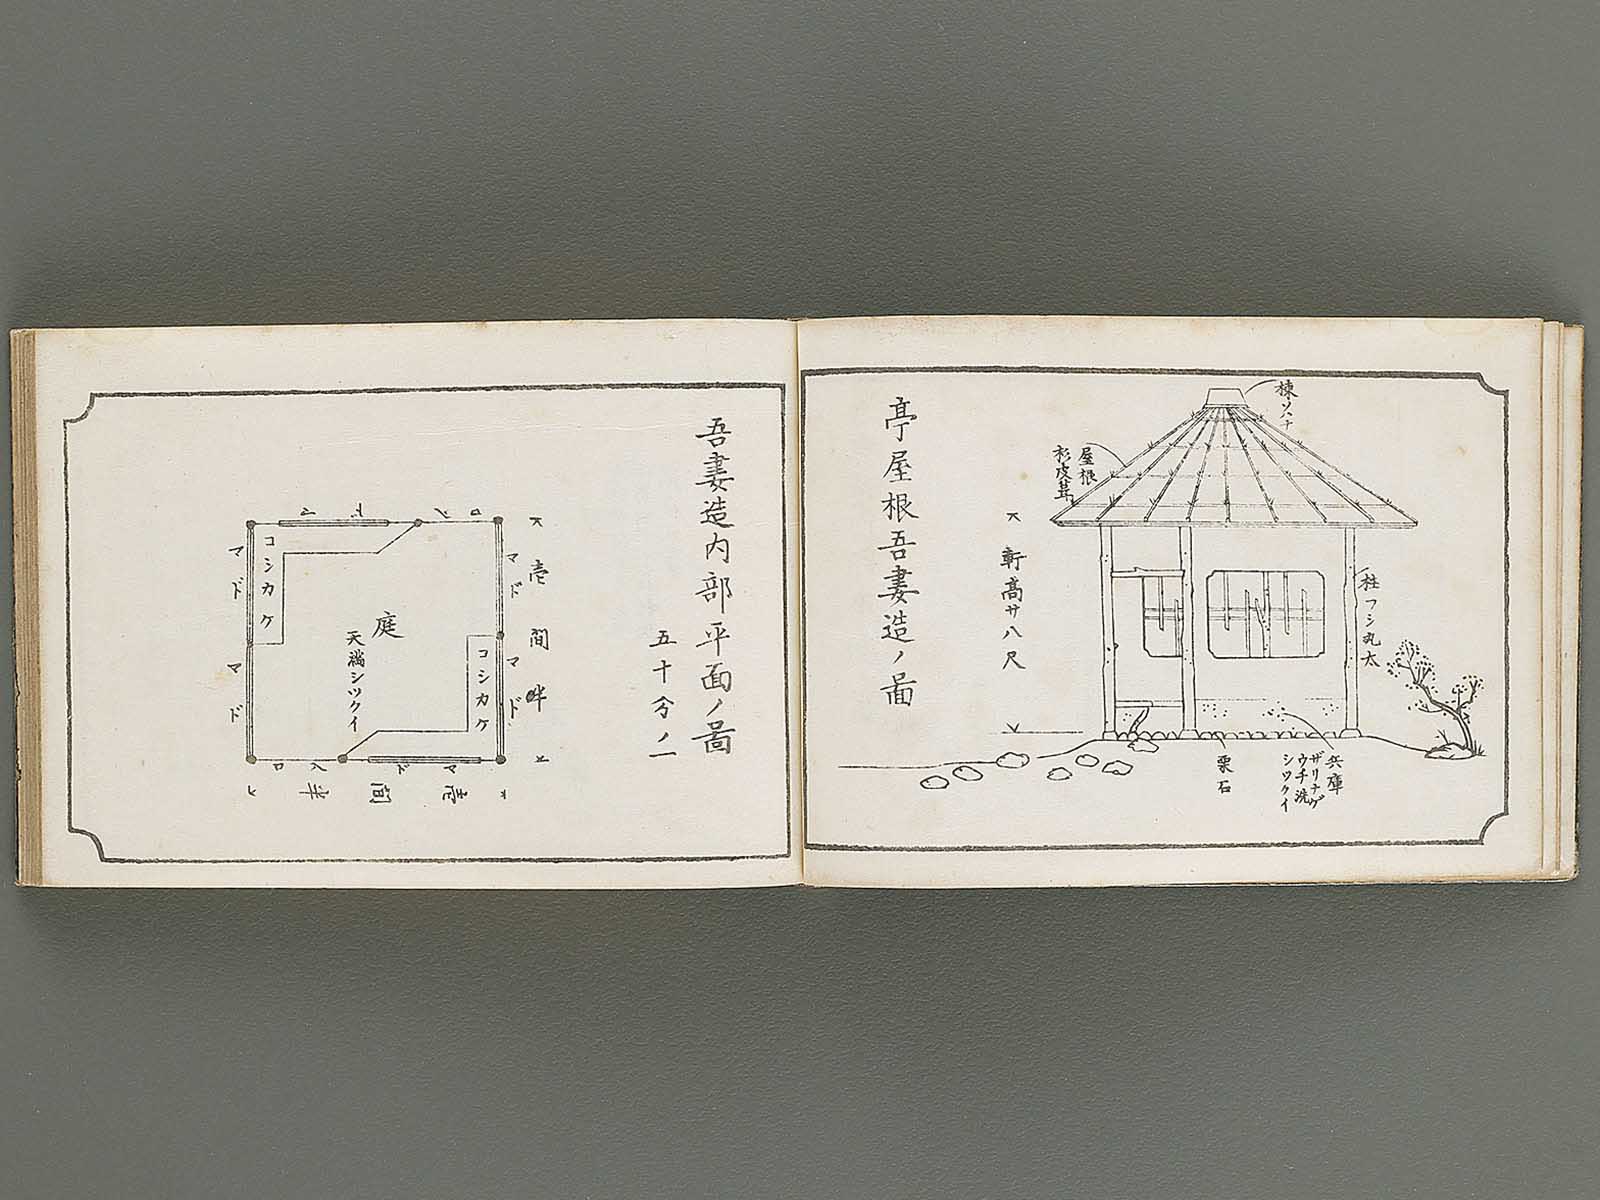 亭屋根吾妻造ノ圖
軒高サ八尺
屋根
杉皮葺
棟ソハナ
柱フシ丸太
兵庫
ザリナゲ
ウチ洗
シツクイ
栗石
吾妻造内部平面ノ圖
五十分ノ一
壱間半
マド
マド
コシカケ
庭
天満シツクイ
コシカケ
マド
マド
マド
入口
マド
入口
壱間半